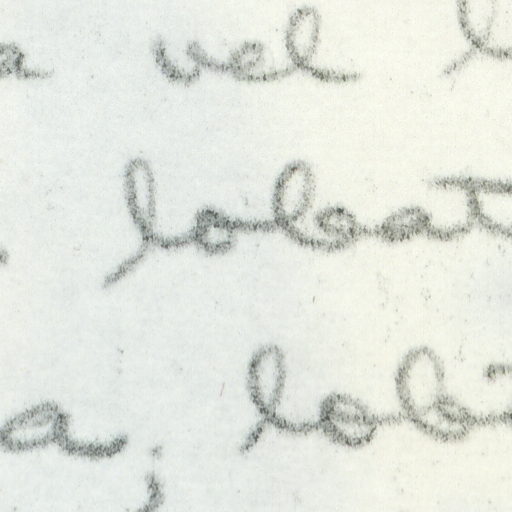 a vel l
lobat
a; lobi